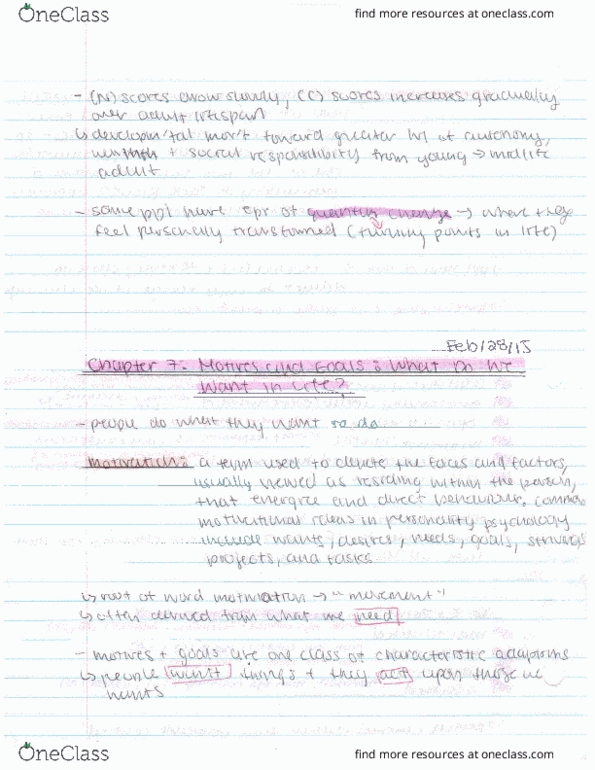 OneClass
find more resources at oneclass.com
- (N) scores slowly, (C) scores increases gradually
over adult lifespan
↳ developm'tal mov't toward greater lvl of autonomy,
warmth + social responsibility from young → midlife
adult
- some ppl have epr of quantum change → where they
feel personally transformed (turning points in life)
Feb/28/15
Chapter 7: Motives and Goals: What Do We
Want in Life?
- people do what they want to do
motivation: a term used to denote the forces and factors,
usually viewed as residing within the person,
that energize and direct behaviour. common
motivational ideas in personality psychology
include wants, desires, needs, goals, strivings
projects, and tasks
↳ root of word motivation → "movement"
↳ often derived from what we need
- motives + goals are one class of characteristic adaptions
↳ people want things + they act upon those
wants
OneClass
find more resources at oneclass.com